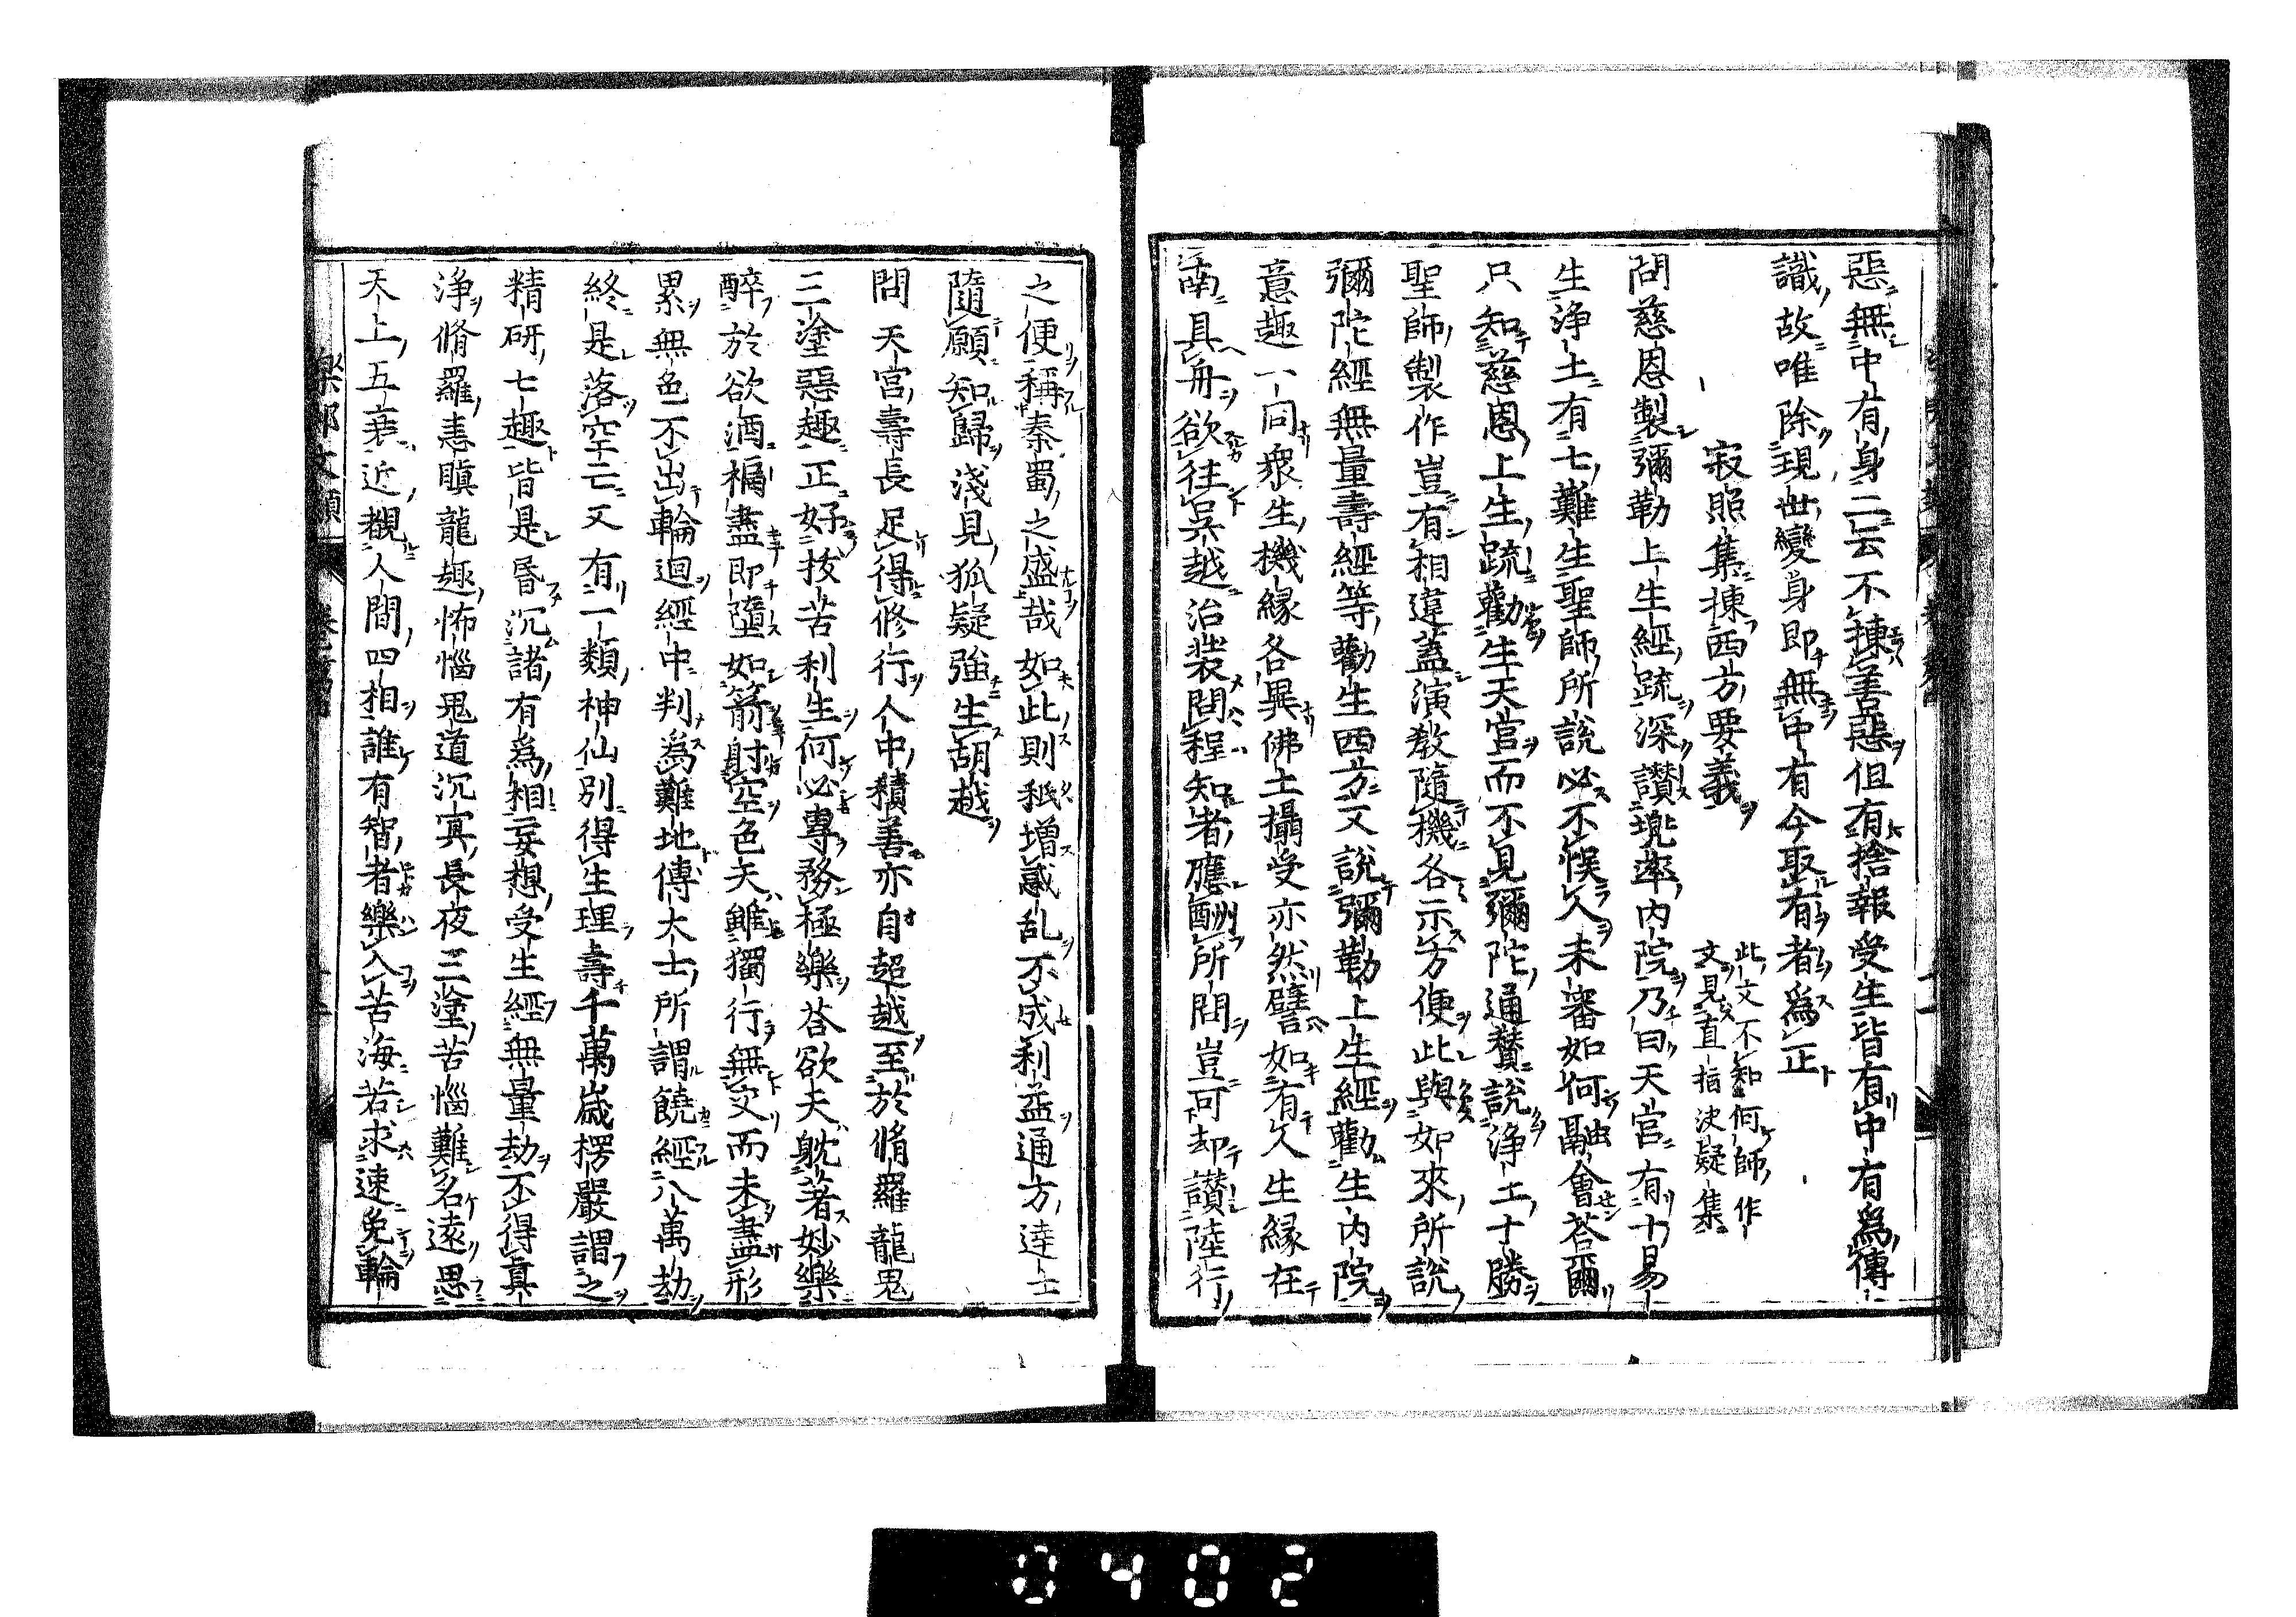 惡無中有身二云不揀善惡但有捨報受生皆有中有爲傳
識故唯除現世變身即無中有今取有者爲正
寂照集揀西方要義
此文不知何師作
文見直指決疑集
問慈恩製彌勒上生經疏深讃兠率内院乃曰天宮有十易
生淨土有七難生聖師所說必不悞人未審如何融會荅爾
只知慈恩上生疏勸生天宮而不見彌陀通賛說淨土十勝
聖師製作豈有相違蓋演教隨機各示方便此與如來所說
彌陀經無量壽經等勸生西方又說彌勒上生經勸生内院
意趣一同衆生機縁各異佛土攝受亦然譬如有人生縁在
南具舟欲往吳越治裝問程知者應酬所問豈可却讃陸行
之便稱秦蜀之盛哉如此則秖増惑乱不成利益通方達士
隨願知歸淺見狐疑強生胡越
問天宮壽長足得修行人中積善亦自超越至於脩羅龍鬼
三塗惡趣正好拔苦利生何必專務極樂荅欲天躭著妙樂
醉於欲酒福盡即墮如箭射空色天雖獨行無交而未盡形
累無色不出輪迴經中判爲難地傳大士所謂饒經八萬劫
終是落空亡又有一類神仙別得生理壽千萬歲楞嚴謂之
精研七趣皆是昏沉諸有爲相妄想受生經無量劫不得眞
淨脩羅恚瞋龍趣怖惱鬼道沉冥長夜三塗苦惱難名遠思
天上五衰近覩人間四相誰有智者樂入苦海若求速免輪
樂邦文類 卷第四
0402